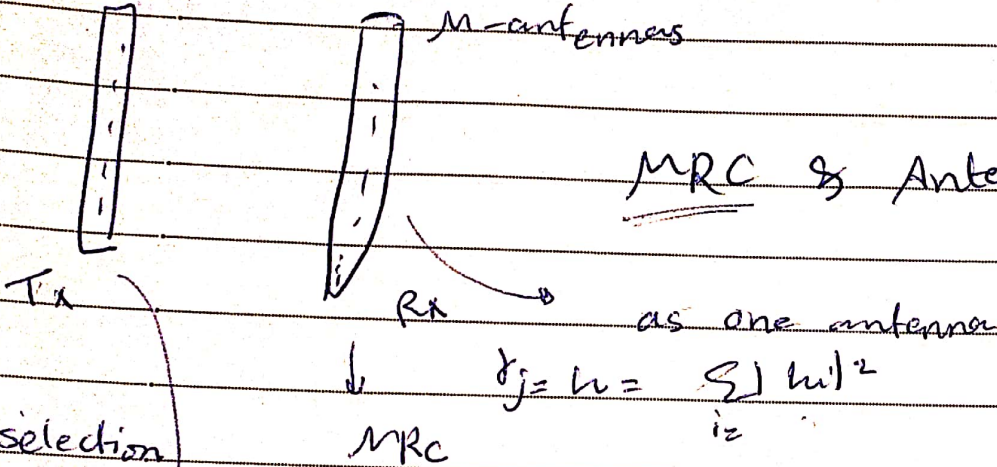 M-antennas
MRC & Ante
Tx
Rx
as one antenna
γj = h = Σ | hi |²
i=
selection
MRC